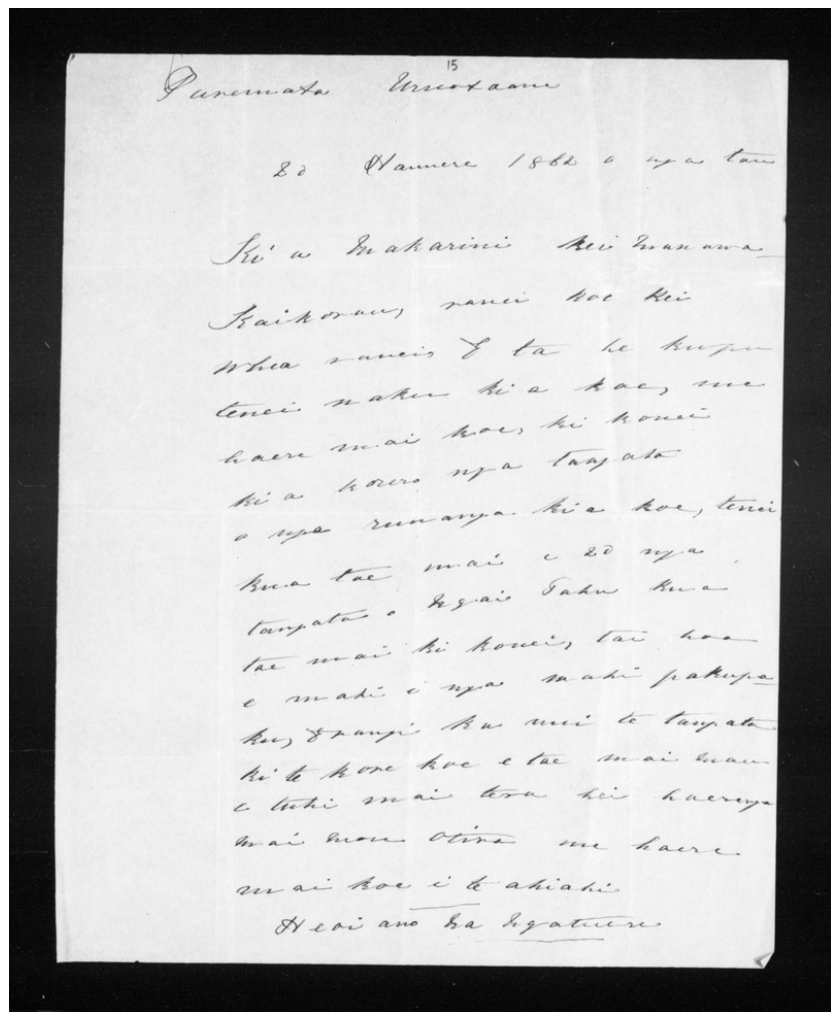 15
Puremata Uruotaane
20 Hanuere 1862 o nga tau
Ki a Makarini kei Manawa-
Kaikorau, ranei koe kei
whea raneis E ta he kupu
tenei naku ki a koe, me
haere mai koe, ki konei
ki a korero nga tangata
o nga runanga kia koe, tenei
kua tae mai e 20 nga
tangata o Ngai Tahu kua
tae mai ki konei, tai hoa
e mahi i nga mahi pakupa-
ku, Erangi ka nui te tangata
ki te kore koe e tae mai mau
e tuhi mai tera hei haerenga
mai mou otira me haere
mai koe i te ahiahi
Heoi ano Na Ngatuere